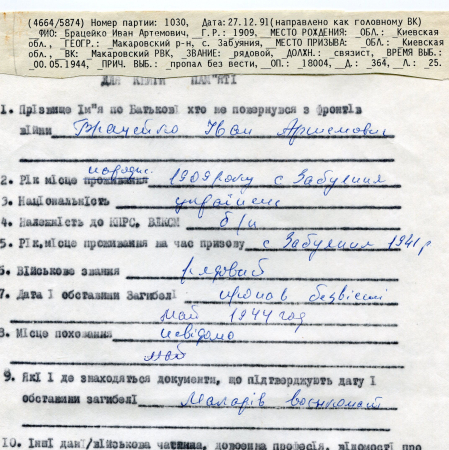 (4664/5874) Номер партии: 1030, Дата:27.12.91(направлено как головному ВК)
ФИО: Брацейко Иван Артемович, Г.Р.: 1909, МЕСТО РОЖДЕНИЯ: ОБЛ.: Киевская
обл., ГЕОГР.: _Макаровский р-н, с. Забуяння, _МЕСТО ПРИЗЫВА: ОБЛ.: Киевская
обл., ВК: Макаровский РВК, ЗВАНИЕ: рядовой, ДОЛЖН.: связист, ВРЕМЯ ВЫБ.:
_00.05.1944, ПРИЧ. ВЫБ.: _пропал без вести, _ОП.: _18004, _Д.: _364, _Л.: _25.
ДЛЯ КНИГИ ПАМ'ЯТІ
1. Прізвище Ім"я по Батькові хто не повернувся з фронтів
війни Брацейко Іван Артемович
народж.
2. Рік місце проживання 1909 року с Забуяння
3. Національність українець
4. Належність до КПРС, ВЛКСМ б/п
5. Рік,місце проживання на час призову с Забуяння 1941 р
6. Військове звання рядовий
7. Дата і обставини Загибелі пропав безвісті
май 1944 год
8. Місце поховання невідомо
9. Які і де знаходяться документи, що підтверджують дату і
обставини загибелі Макарів военкомат
10. Інші дані/військова частина, довоєнна професія, відомості про